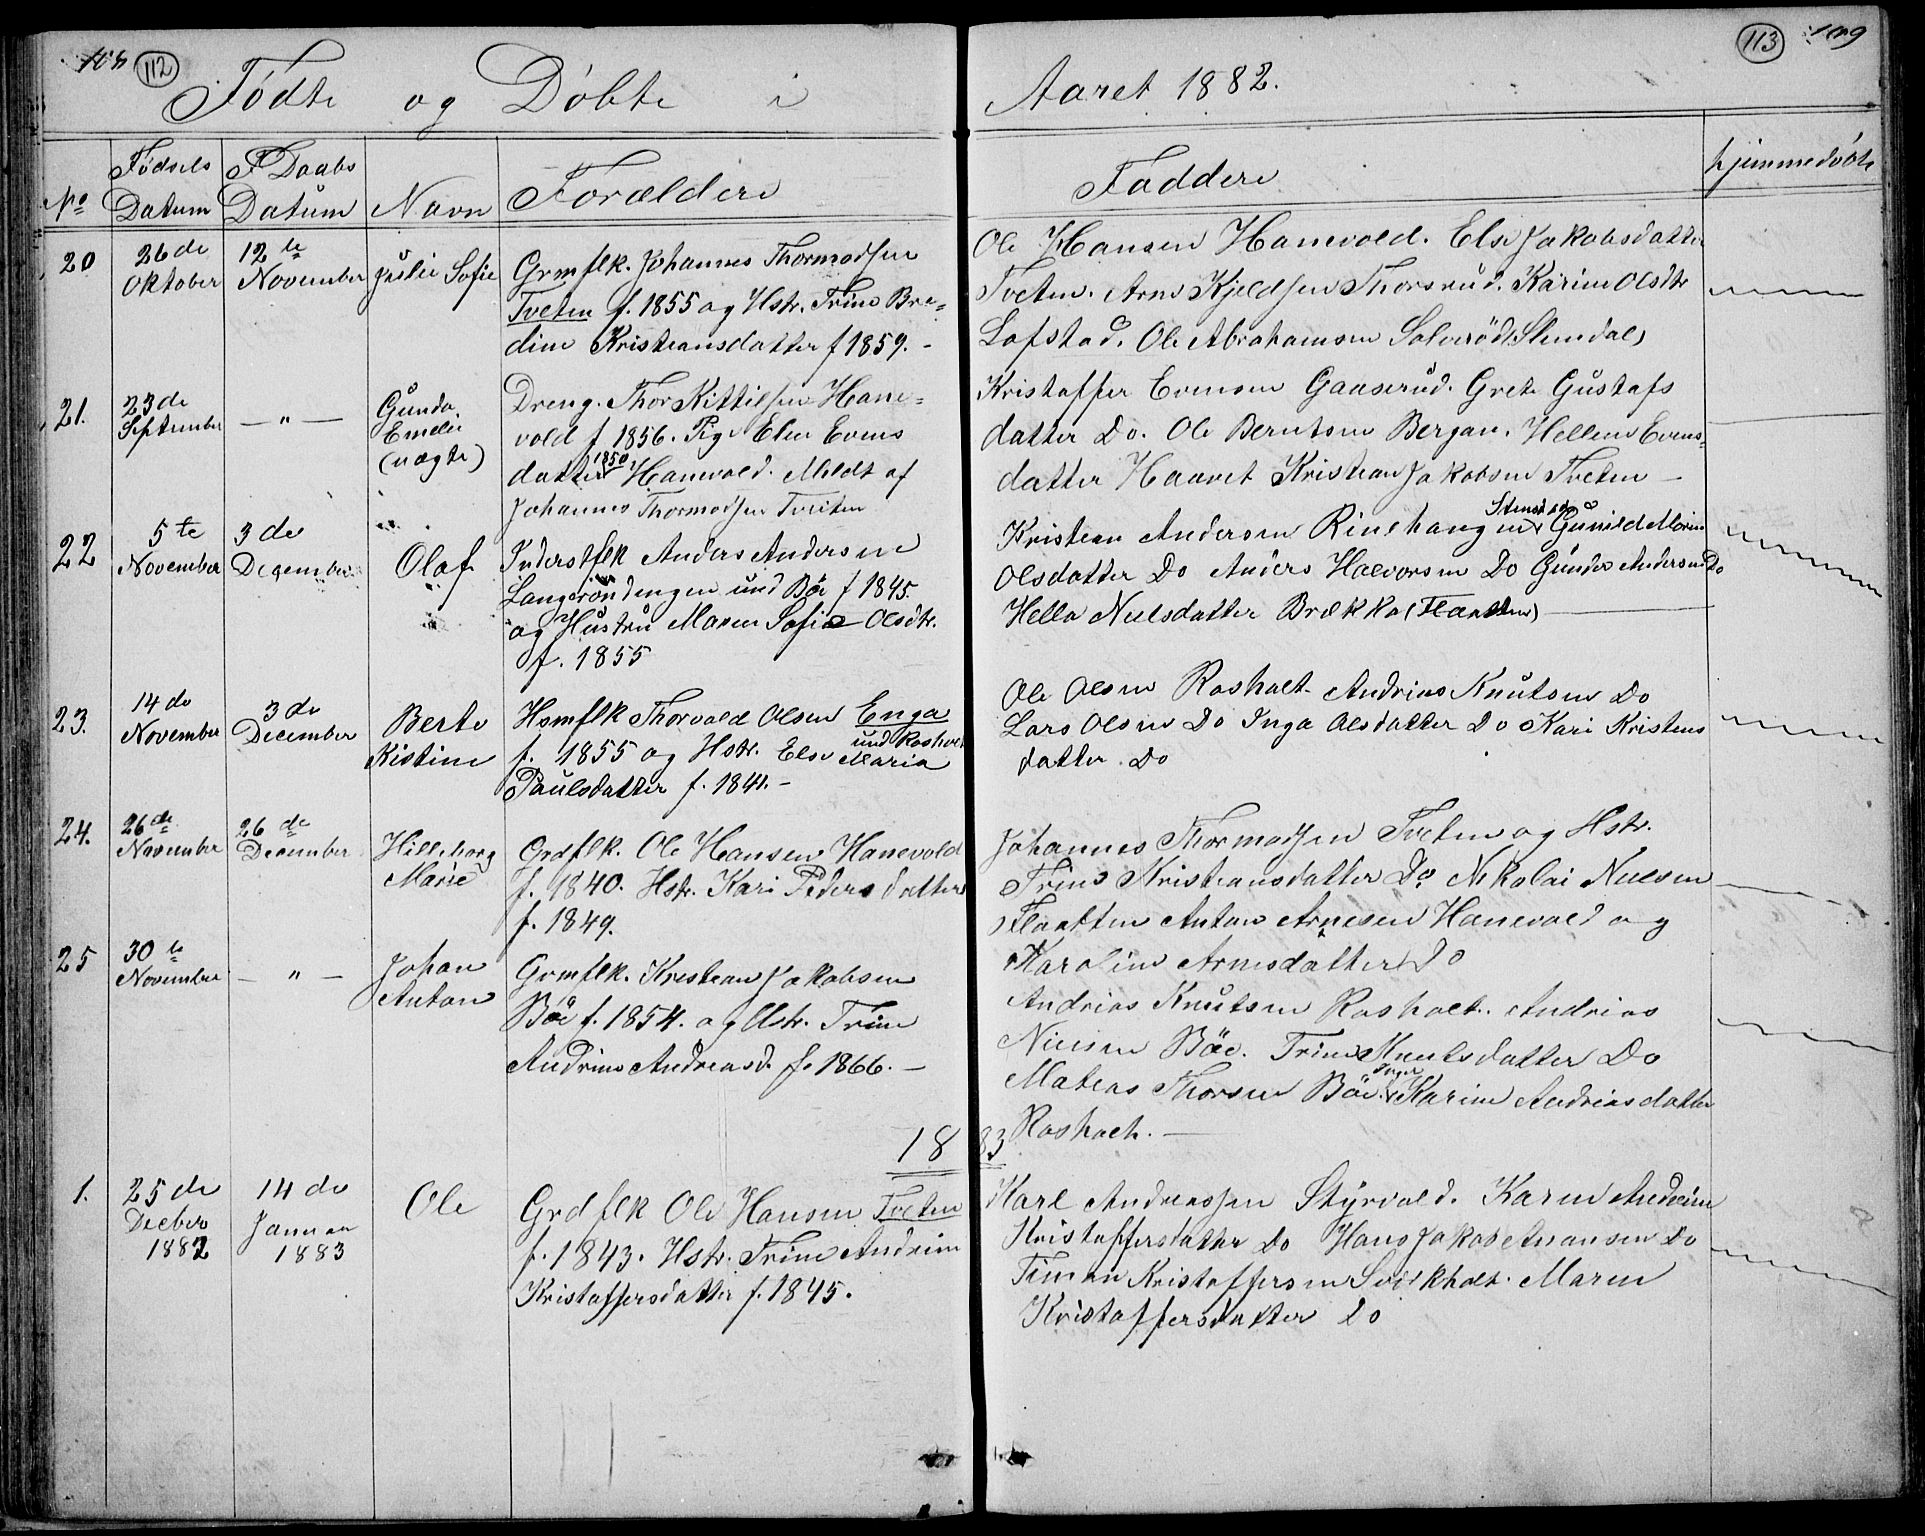 112
113
109
Fødte og Døbte i
Aaret 1882.
No
Fødsels
Datum
Daabs
Datum
Navn
Forældere
Faddere
hjemmedøbt
20
26de
Oktober
12te
November
Julie Sofie
Grmflk. Johannes Thormodsen
Tveten f. 1855 og Hstr. Trine Bre-
dine Kristiansdatter f 1859. -
Ole Hansen Hanevold. Else Jakobsdatter
Tveten. Arne Kjeldsen Thorsrud. Karine Olsdtr
Lofstad. Ole Abrahamsen Solverød (Slemdal)
21.
23de
September
— " —
Gunda
Emelie
(uægte)
Dreng. Thor Kittilsen Hane-
vold f 1856. Pige Elen Evens
datter 1850 Hanevold. Meldt af
Johannes Thormodsen Tveiten
Kristoffer Evensen Gaaserud. Grete Gustafs
datter Do. Ole Berntsen Bergan. Hellene Evens-
datter Haavet Kristian Jakobsen Tveten —
22
5te
November
3de
December
Olaf
Inderstflk Anders Andersen
Langerønningen und Böe f 1845.
og Hustru Maren Sofie Olsdtr.
f. 1855
Kristian Andersen Gunild Maria
Olsdatter Do Anders Halvorsen Do Gunder Andersen Do
Hella Nielsdatter Brække (Flaatten) —
23.
14de
November
3de
December
Berte
Kistine
Hsmflk Thorvald Olsen Enga
und Rosholt
f. 1855 og Hstr. Else Maria
Paulsdatter f. 1841. -
Ole Olsen Rosholt. Andrias Knutsen Do
Lars Olsen Do Inga Olsdatter Do Kari Kristens
datter Do
24.
26de
November
26de
December
Hilleborg
Marie
Grdflk. Ole Hansen Hanevold
f. 1840. Hstr. Kari Pedersdatter
f. 1849.
Johannes Thormodsen Tveten og Hstr.
Trine Kristiansdatter Do Nikolai Nielsen
Flaatten Anton Arnesen Hanevold og
Karoline Arnesdatter Do
25
30te
November
— " —
Johan
Anton
Grmflk. Kristian Jakobsen
Böe f. 1854. og Hstr. Trine
Andrine Andreasd. f. 1866. —
Andrias Knutsen Rosholt. Andrias
Nielsen Böe. Trine Knutsdatter Do
Matias Thorsen Böe. Inger Karine Andreasdatter
Rosholt. —
1883
1.
25de
Decbr
1882
14de
Januar
1883
Ole
Grdflk Ole Hansen Tveten
f. 1843. Hstr. Trine Andrine
Kristoffersdatter f. 1845.
Karl Andreassen Styrvold. Karen Andrine
Kristoffersdatter Do Hans Jakob Do
Timan Kristoffersen Svirkholt. Maren
Kristoffersdatter Do